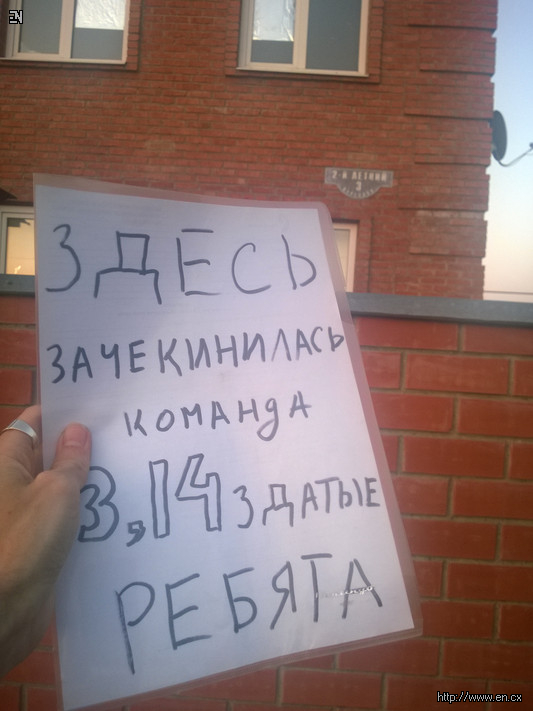 EN
2-й ЛЕТНИЙ
3
ЗДЕСЬ
ЗАЧЕКИНИЛАСЬ
КОМАНДА
3,14ЗДАТЫЕ
РЕБЯТА
http://www.en.cx